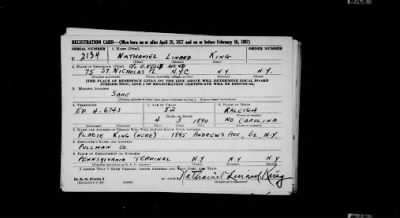 REGISTRATION CARD—(Men born on or after April 28, 1877 and on or before February 16, 1897)
SERIAL NUMBER 1. NAME (Print)
2134 NATHANIEL LINARD KING
2. PLACE OF RESIDENCE (Print)
75 ST. NICHOLAS PL N.Y.C N.Y.
[THE PLACE OF RESIDENCE GIVEN ON THE LINE ABOVE WILL DETERMINE LOCAL BOARD
JURISDICTION; LINE 2 OF REGISTRATION CERTIFICATE WILL BE IDENTICAL]
3. MAILING ADDRESS
SAME
4. TELEPHONE 5. AGE IN YEARS 6. PLACE OF BIRTH
ED 4-6743 52 RALEIGH
DATE OF BIRTH
4 3 1890 NO CAROLINA
7. NAME AND ADDRESS OF PERSON WHO WILL ALWAYS KNOW YOUR ADDRESS
KING (NIECE) 1895 ANDREWS AVE, BX. N.Y.
8. EMPLOYER'S NAME AND ADDRESS
PULLMAN CO
9. PLACE OF EMPLOYMENT OR BUSINESS
PENNSYLVANIA TERMINAL N.Y N.Y
I AFFIRM THAT I HAVE VERIFIED ABOVE ANSWERS AND THAT THEY ARE TRUE.
Nathaniel Linard King